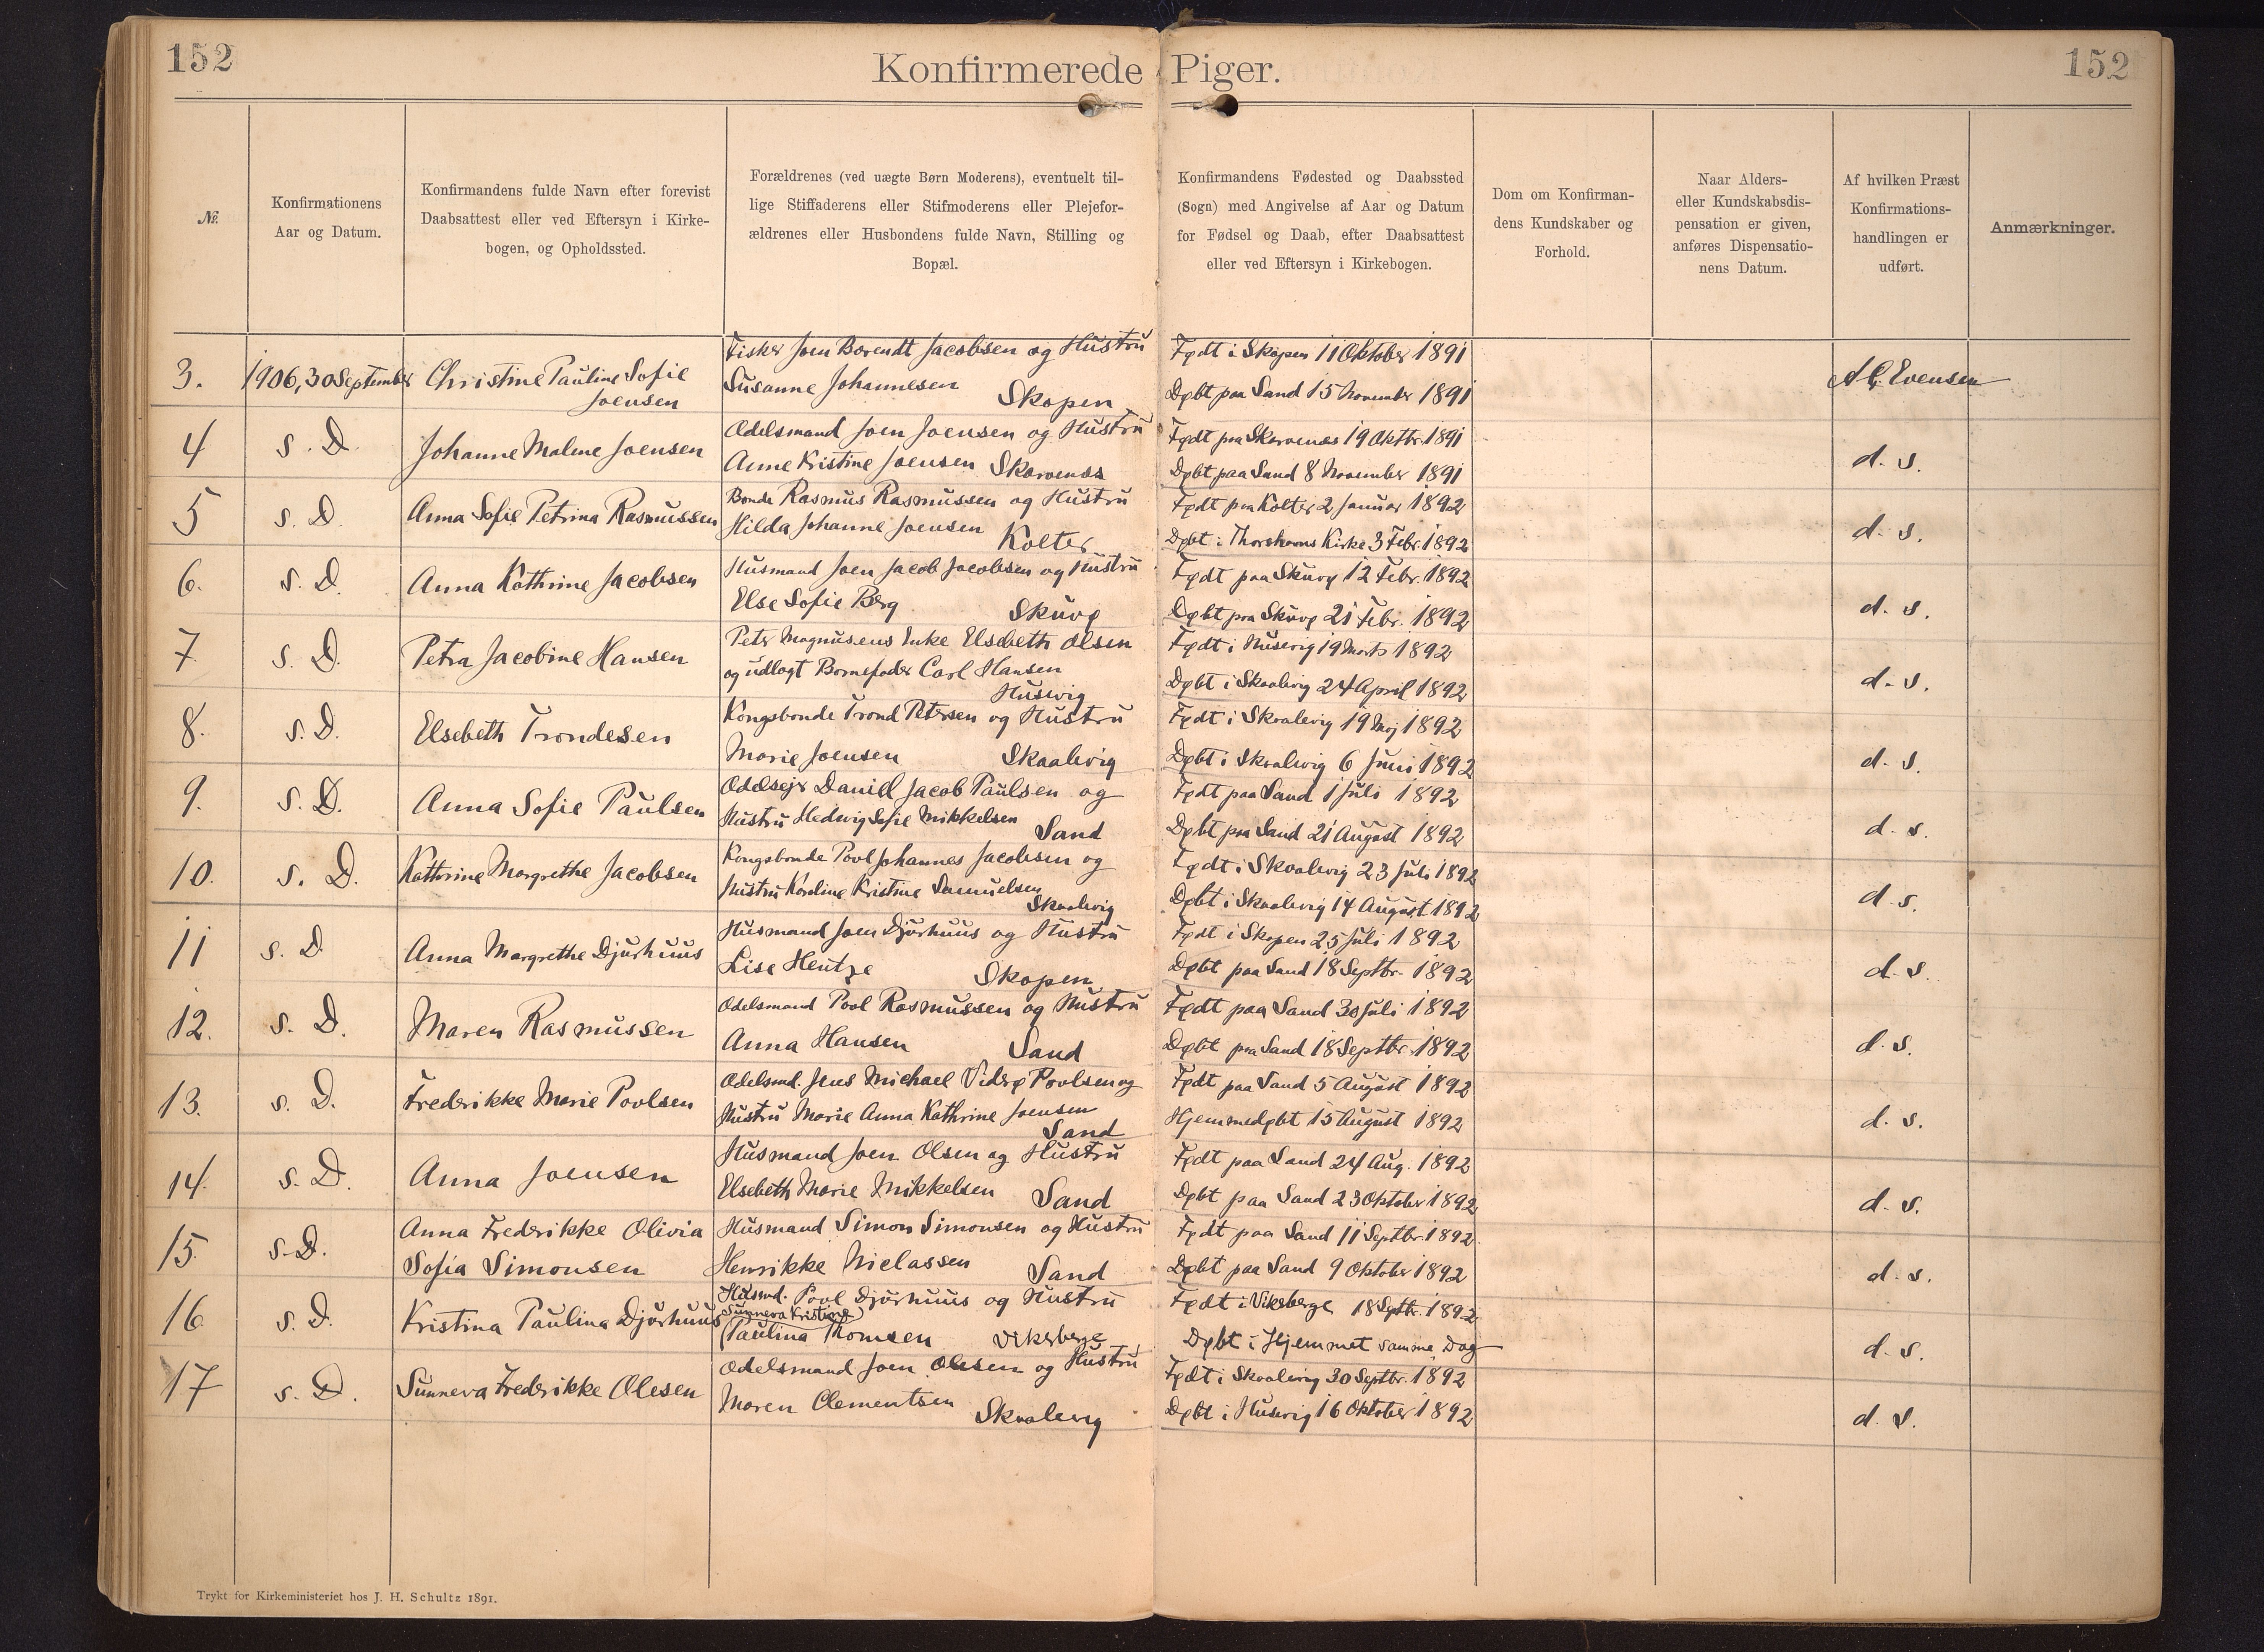 152
Konfirmerede Piger.
152
Nr.
Konfirmationens
Aar og Datum.
Konfirmandens fulde Navn efter forevist
Daabsattest eller ved Eftersyn i Kirke-
bogen, og Opholdssted.
Forældrenes (ved uægte Børn Moderens), eventuelt til-
lige Stiffaderens eller Stifmoderens eller Plejefor-
ældrenes eller Husbondens fulde Navn, Stilling og
Bopæl.
Konfirmandens Fødested og Daabssted
(Sogn) med Angivelse af Aar og Datum
for Fødsel og Daab, efter Daabsattest
eller ved Eftersyn i Kirkebogen.
Dom om Konfirman-
dens Kundskaber og
Forhold.
Naar Alders-
eller Kundskabsdis-
pensation er given,
anføres Dispensatio-
nens Datum.
Af hvilken Præst
Konfirmations-
handlingen er
udført.
Anmærkninger.
3.
1906, 30 September
Christine Pauline Sofie
Joensen
Fisker Joen Berendt Jacobsen og Hustru
Susanne Johannesen
Skopen
Født i Skopen 11 Oktober 1891
Døbt paa Sand 15 November 1891
A C. Evensen
4
s. D.
Johanne Malene Joensen
Odelsmand Joen Joensen og Hustru
Anne Kristine Joensen Skarvenæs
Født paa Skarvenæs 19 Oktbr. 1891
Døbt paa Sand 8 November 1891
d. s.
5
s. D.
Anna Sofie Petrina Rasmussen
Bonde Rasmus Rasmussen og Hustru
Hilda Johanne Joensen
Kolter
Født paa Kolter 2 Januar 1892
Døbt i Thorshavns Kirke 3 Febr. 1892
d. s.
6.
s. D.
Anna Kathrine Jacobsen
Husmand Joen Jacob Jacobsen og Hustru
Else Sofie Berg
Skuvø
Født paa Skuvø 12 Febr. 1892
Døbt paa Skuvø 21 Febr. 1892
d. s.
7.
s. D.
Petra Jacobine Hansen
Peter Magnusens Enke Elsebeth Olsen
og udlagt Barnefader Carl Hansen
Husevig
Født i Husevig 19 Marts 1892
Døbt i Skaalevig 24 April 1892
d. s.
8.
s. D.
Elsebeth Trondesen
Kongsbonde Trond Petersen og Hustru
Marie Joensen
Skaalevig
Født i Skaalevig 19 Maj 1892
Døbt i Skaalevig 6 Juni 1892
d. s.
9.
s. D.
Anna Sofie Paulsen
Odelsejr Daniel Jacob Paulsen og
Hustru Hedvig Sofie Mikkelsen
Sand
Født paa Sand 1 Juli 1892
Døbt paa Sand 21 August 1892
d. s.
10.
s. D.
Kathrine Margrethe Jacobsen
Kongsbonde Poul Johannes Jacobsen og
Hustru Karoline Kristine Samuelsen
Skaalevig
Født i Skaalevig 23 Juli 1892
Døbt i Skaalevig 14 August 1892
d. s.
11
s. D.
Anna Margrethe Djurhuus
Husmand Joen Djurhuus og Hustru
Lise Hentze
Skopen
Født i Skopen 25 Juli 1892
Døbt paa Sand 18 Septbr. 1892
d. s.
12.
s. D.
Maren Rasmussen
Odelsmand Poul Rasmussen og Hustru
Anna Hansen
Sand
Født paa Sand 30 Juli 1892
Døbt paa Sand 18 Septbr. 1892
d. s.
13.
s. D.
Frederikke Marie Poulsen
Odelsmd. Jens Michael Viderø Poulsen og
Hustru Marie Anna Kathrine Joensen
Sand
Født paa Sand 5 August 1892
Hjemmedøbt 15 August 1892
d. s.
14.
s. D.
Anna Joensen
Husmand Joen Olsen og Hustru
Elsebeth Marie Mikkelsen
Sand
Født paa Sand 24 Aug. 1892
Døbt paa Sand 23 Oktober 1892
d. s.
15.
s. D.
Anna Frederikke Olivia
Sofia Simonsen
Husmand Simon Simonsen og Hustru
Henrikke Niclassen
Sand
Født paa Sand 11 Septbr. 1892
Døbt paa Sand 9 Oktober 1892
d. s.
16
s. D.
Kristina Paulina Djurhuus
Husmd. Poul Djurhuus og Hustru
(Sunneva Kristine)
Paulina Thomsen
Vikeberge
Født i Vikeberge 18 Septbr. 1892
Døbt i Hjemmet samme Dag
d. s.
17
s. D.
Sunneva Frederikke Olesen
Odelsmand Joen Olesen og Hustru
Maren Clementsen
Skaalevig
Født i Skaalevig 30 Septbr. 1892
Døbt i Husevig 16 Oktober 1892
d. s.
Trykt for Kirkeministeriet hos J. H. Schultz 1891.